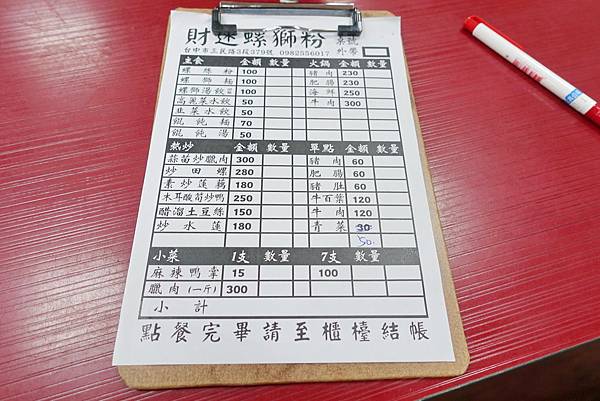 財迷螺獅粉 桌號
台中市三民路3段379號 0982556017 外帶
主食 金額 數量 火鍋 金額 數量
螺螄粉 100 豬肉 230
螺獅麵 100 肥腸 230
螺獅湯餃 100 海鮮 250
高麗菜水餃 50 牛肉 300
韭菜水餃 50
餛飩麵 70
餛飩湯 50
熱炒 金額 數量 單點 金額 數量
蒜苗炒臘肉 300 豬肉 60
炒田螺 280 肥腸 60
素炒蓮藕 180 豬肚 60
木耳酸筍炒鴨 250 牛百葉 120
醋溜土豆絲 150 牛肉 120
炒水蓮 180 青菜 30
50.
小菜 1支 數量 7支 數量
麻辣鴨掌 15 100
臘肉(一斤) 300
小計
點餐完畢請至櫃檯結帳